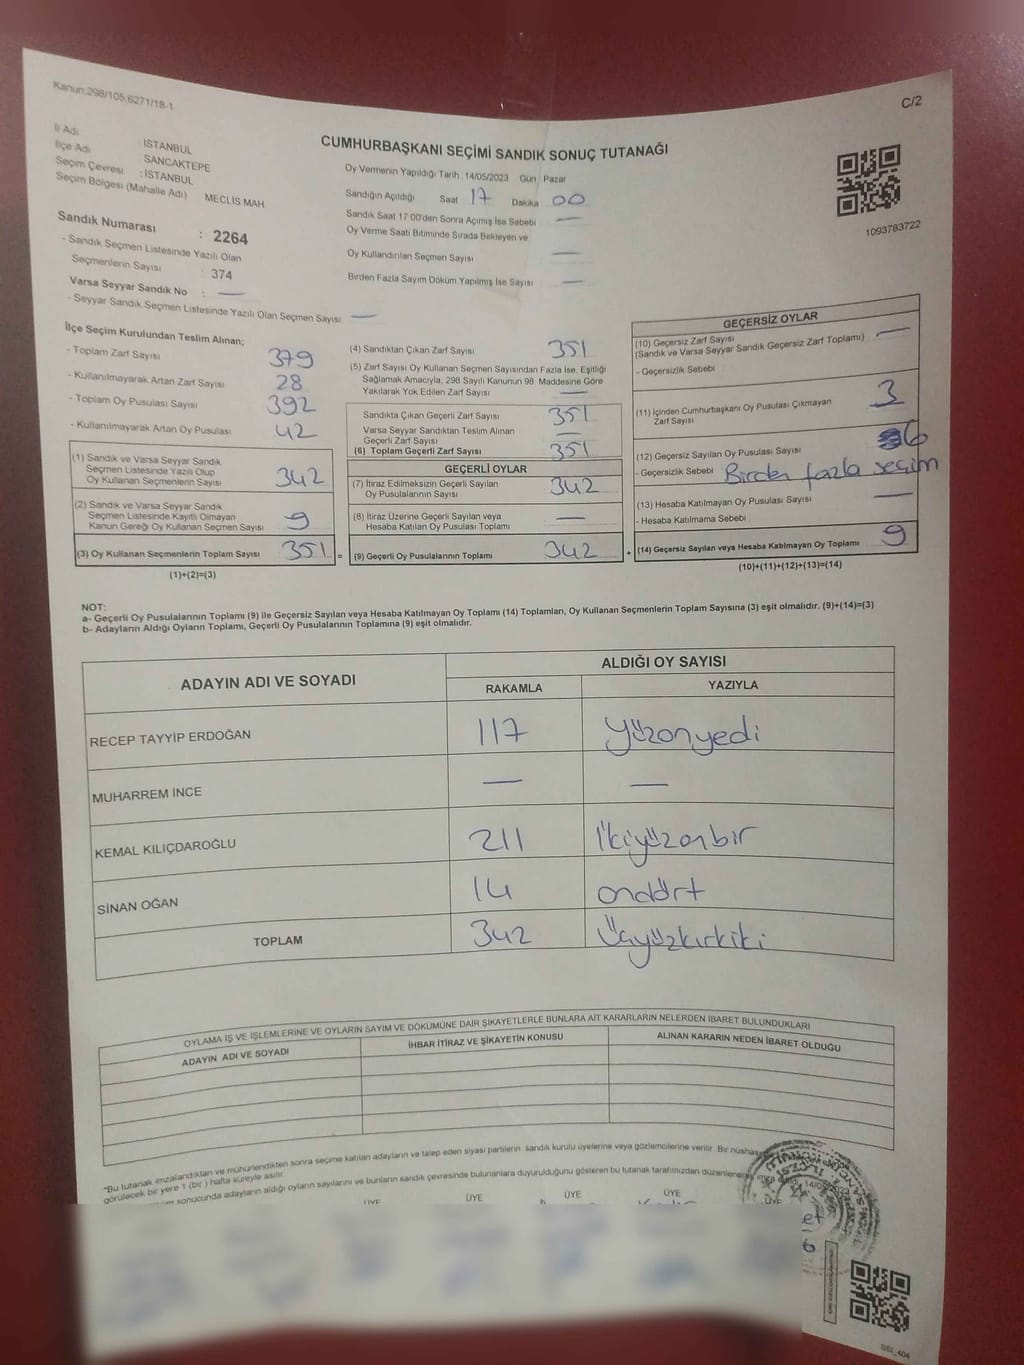 Kanun:298/105,6271/18-1
C/2
CUMHURBAŞKANI SEÇİMİ SANDIK SONUÇ TUTANAĞI
İl Adı İSTANBUL
İlçe Adı SANCAKTEPE
Seçim Çevresi :İSTANBUL
Seçim Bölgesi (Mahalle Adı) MECLIS MAH
Sandık Numarası : 2264
- Sandık Seçmen Listesinde Yazılı Olan
Seçmenlerin Sayısı : 374
Varsa Seyyar Sandık No : —
- Seyyar Sandık Seçmen Listesinde Yazılı Olan Seçmen Sayısı —
Oy Vermenin Yapıldığı Tarih 14/05/2023 Gün Pazar
Sandığın Açıldığı Saat 17 Dakika 00
Sandık Saat 17:00'den Sonra Açılmış İse Sebebi —
Oy Verme Saati Bitiminde Sırada Bekleyen ve
Oy Kullandırılan Seçmen Sayısı —
Birden Fazla Sayım Döküm Yapılmış İse Sayısı —
1093783722
İlçe Seçim Kurulundan Teslim Alınan;
- Toplam Zarf Sayısı 379
- Kullanılmayarak Artan Zarf Sayısı 28
- Toplam Oy Pusulası Sayısı 392
- Kullanılmayarak Artan Oy Pusulası 42
(1) Sandık ve Varsa Seyyar Sandık
Seçmen Listesinde Yazılı Olup
Oy Kullanan Seçmenlerin Sayısı 342
(2) Sandık ve Varsa Seyyar Sandık
Seçmen Listesinde Kayıtlı Olmayan
Kanun Gereği Oy Kullanan Seçmen Sayısı 9
(3) Oy Kullanan Seçmenlerin Toplam Sayısı 351 =
(1)+(2)=(3)
(4) Sandıktan Çıkan Zarf Sayısı 351
(5) Zarf Sayısı Oy Kullanan Seçmen Sayısından Fazla İse, Eşitliği
Sağlamak Amacıyla, 298 Sayılı Kanunun 98. Maddesine Göre
Yakılarak Yok Edilen Zarf Sayısı —
Sandıkta Çıkan Geçerli Zarf Sayısı 351
Varsa Seyyar Sandıktan Teslim Alınan
Geçerli Zarf Sayısı —
(6) Toplam Geçerli Zarf Sayısı 351
GEÇERLİ OYLAR
(7) İtiraz Edilmeksizin Geçerli Sayılan
Oy Pusulalarının Sayısı 342
(8) İtiraz Üzerine Geçerli Sayılan veya
Hesaba Katılan Oy Pusulaları Toplamı —
(9) Geçerli Oy Pusulalarının Toplamı 342 +
GEÇERSİZ OYLAR
(10) Geçersiz Zarf Sayısı
(Sandık ve Varsa Seyyar Sandık Geçersiz Zarf Toplamı) —
- Geçersizlik Sebebi
(11) İçinden Cumhurbaşkanı Oy Pusulası Çıkmayan
Zarf Sayısı 3
(12) Geçersiz Sayılan Oy Pusulası Sayısı 6
- Geçersizlik Sebebi Birden fazla seçim
(13) Hesaba Katılmayan Oy Pusulası Sayısı —
- Hesaba Katılmama Sebebi
(14) Geçersiz Sayılan veya Hesaba Katılmayan Oy Toplamı 9
(10)+(11)+(12)+(13)=(14)
NOT:
a- Geçerli Oy Pusulalarının Toplamı (9) ile Geçersiz Sayılan veya Hesaba Katılmayan Oy Toplamı (14) Toplamları, Oy Kullanan Seçmenlerin Toplam Sayısına (3) eşit olmalıdır. (9)+(14)=(3)
b- Adayların Aldığı Oyların Toplamı, Geçerli Oy Pusulalarının Toplamına (9) eşit olmalıdır.
ADAYIN ADI VE SOYADI ALDIĞI OY SAYISI
RAKAMLA YAZIYLA
RECEP TAYYİP ERDOĞAN 117 Yüzonyedi
MUHARREM İNCE — —
KEMAL KILIÇDAROĞLU 211 İkiyüzonbir
SİNAN OĞAN 14 ondört
TOPLAM 342 Üçyüzkırkiki
OYLAMA İŞ VE İŞLEMLERİNE VE OYLARIN SAYIM VE DÖKÜMÜNE DAİR ŞİKAYETLERLE BUNLARA AİT KARARLARIN NELERDEN İBARET BULUNDUKLARI
ADAYIN ADI VE SOYADI İHBAR İTİRAZ VE ŞİKAYETİN KONUSU ALINAN KARARIN NEDEN İBARET OLDUĞU
"Bu tutanak imzalandıktan ve mühürlendikten sonra seçime katılan adayların ve talep eden siyasi partilerin sandık kurulu üyelerine veya gözlemcilerine verilir. Bir nüshası
görülecek bir yere 1 (bir) hafta süreyle asılır.
sonucunda adayların aldığı oyların sayılarını ve bunların sandık çevresinde bulunanlara duyurulduğunu gösteren bu tutanak tarafımızdan düzenlenerek
ÜYE ÜYE ÜYE ÜYE ÜYE